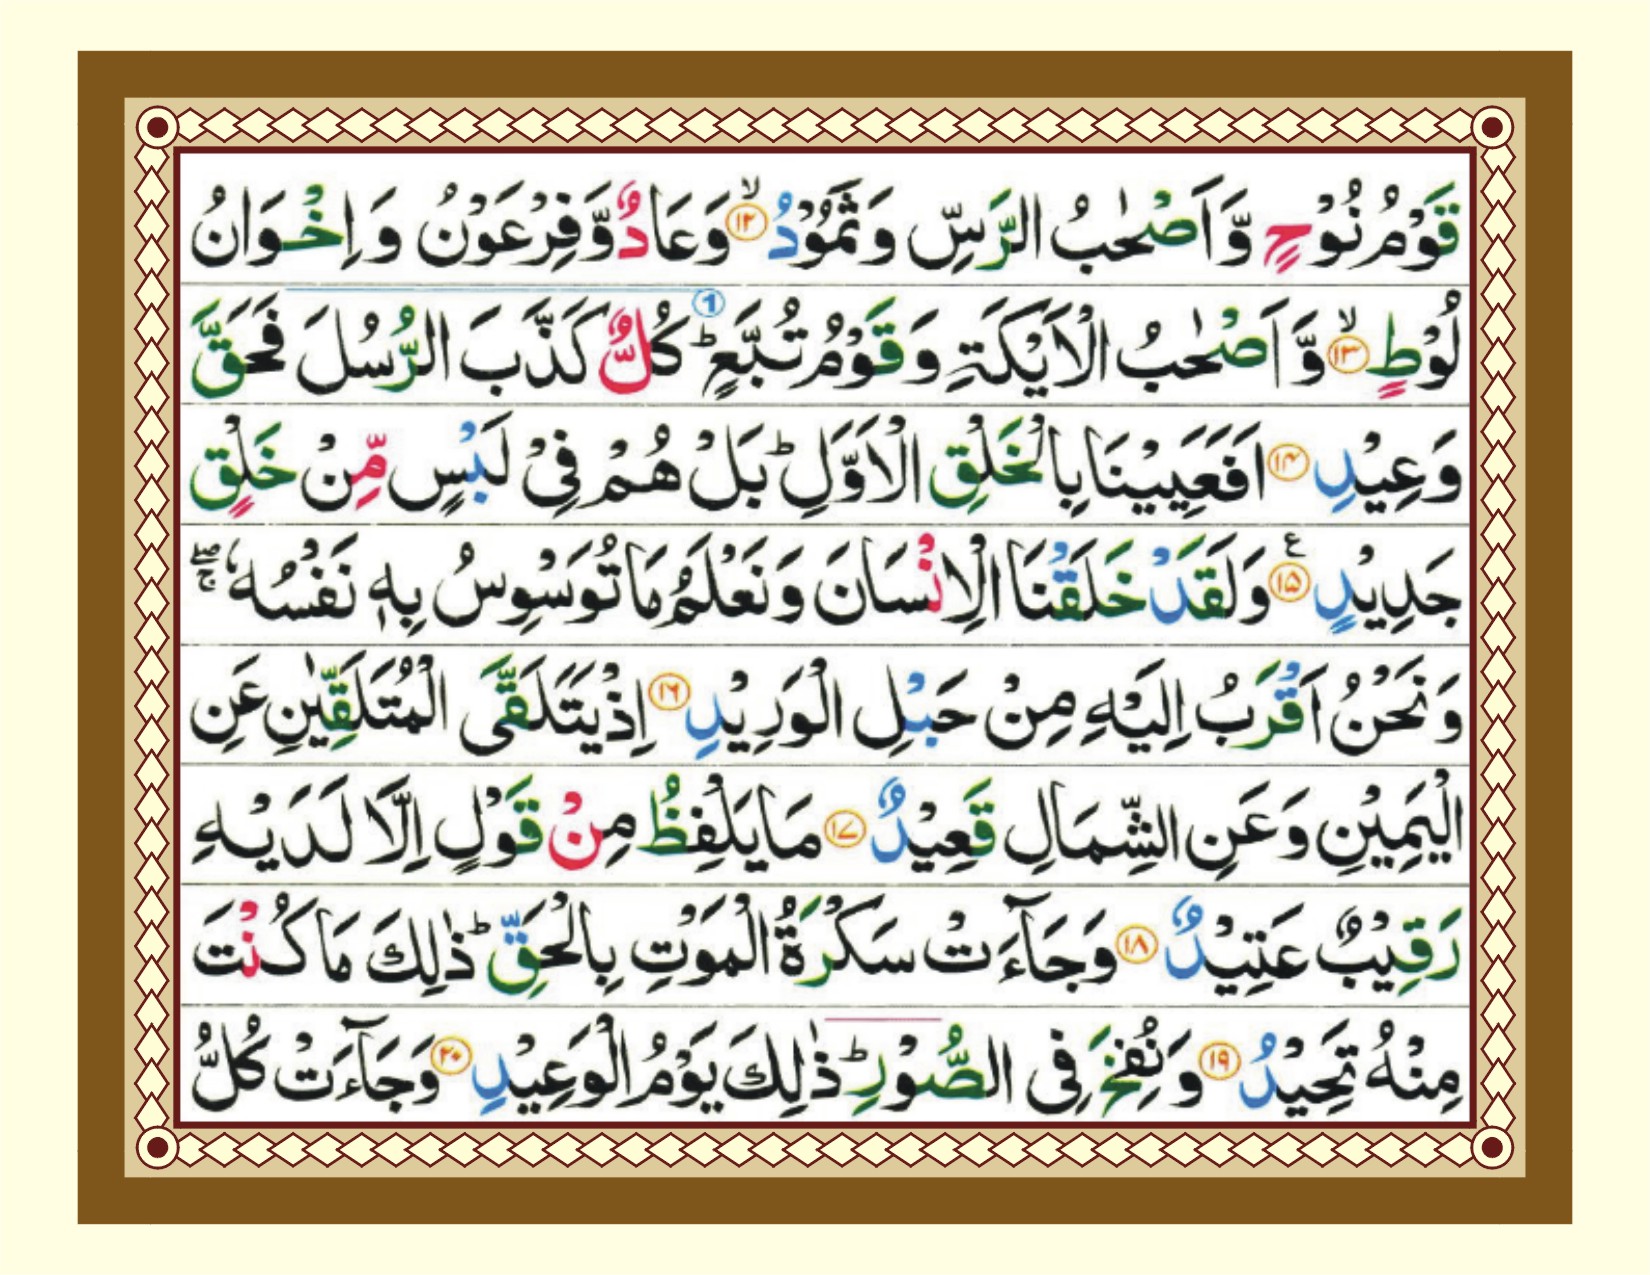 قَوْمُ نُوْحٍ وَّاَصْحٰبُ الرَّسِّ وَثَمُوْدُ ۙ﴿۱۲﴾ وَعَادٌ وَّفِرْعَوْنُ وَاِخْوَانُ
لُوْطٍ ۙ﴿۱۳﴾ وَّاَصْحٰبُ الْاَيْكَةِ وَقَوْمُ تُبَّعٍ ؕ ① كُلٌّ كَذَّبَ الرُّسُلَ فَحَقَّ
وَعِيْدِ ﴿۱۴﴾ اَفَعَيِيْنَا بِالْخَلْقِ الْاَوَّلِ ؕ بَلْ هُمْ فِیْ لَبْسٍ مِّنْ خَلْقٍ
جَدِيْدٍ ﴿۱۵﴾ ع وَلَقَدْ خَلَقْنَا الْاِنْسَانَ وَنَعْلَمُ مَا تُوَسْوِسُ بِهٖ نَفْسُهٗ ۖۚ
وَنَحْنُ اَقْرَبُ اِلَيْهِ مِنْ حَبْلِ الْوَرِيْدِ ﴿۱۶﴾ اِذْ يَتَلَقَّى الْمُتَلَقِّيٰنِ عَنِ
الْيَمِيْنِ وَعَنِ الشِّمَالِ قَعِيْدٌ ﴿۱۷﴾ مَا يَلْفِظُ مِنْ قَوْلٍ اِلَّا لَدَيْهِ
رَقِيْبٌ عَتِيْدٌ ﴿۱۸﴾ وَجَآءَتْ سَكْرَةُ الْمَوْتِ بِالْحَقِّ ؕ ذٰلِكَ مَا كُنْتَ
مِنْهُ تَحِيْدُ ﴿۱۹﴾ وَنُفِخَ فِی الصُّوْرِ ؕ ذٰلِكَ يَوْمُ الْوَعِيْدِ ﴿۲۰﴾ وَجَآءَتْ كُلُّ